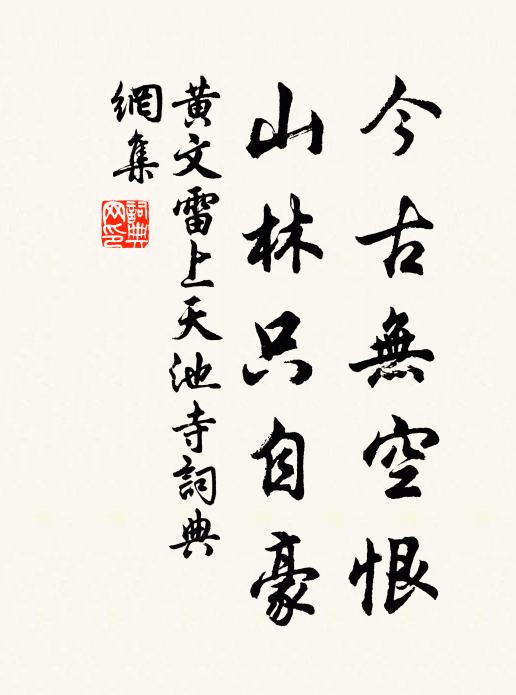 今古無空恨
山林只自豪
黄文雷上天池寺詞典
網集
詞典
网印